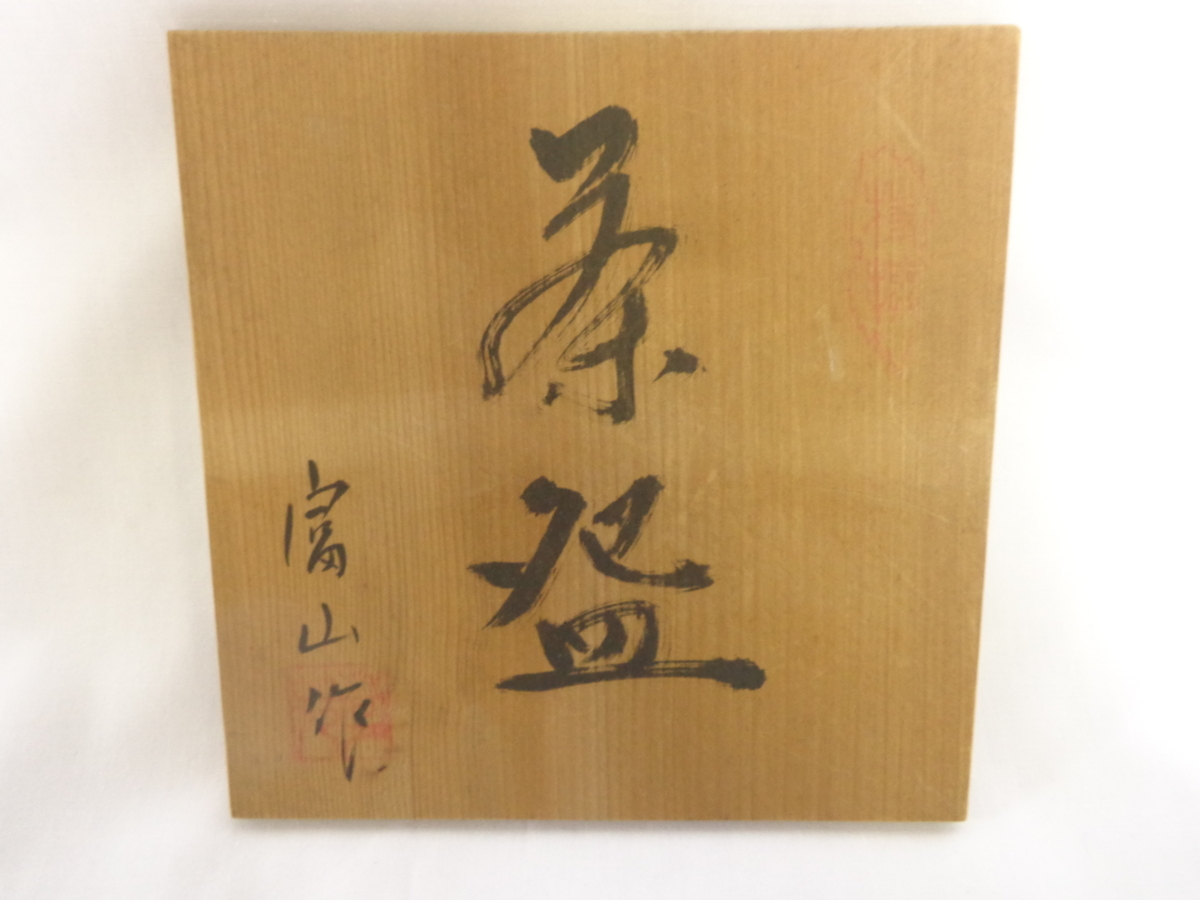 茶盌
富山作